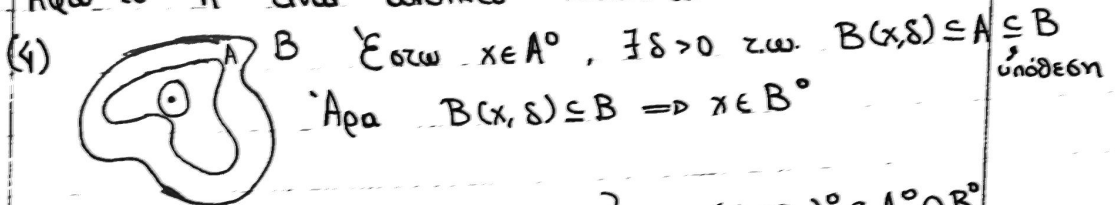 (4) A B Έστω x ∈ A°, ∃ δ > 0 τ.ω. B(x,δ) ⊆ A ⊆ B
υπόθεση
Άρα B(x, δ) ⊆ B ⟹ x ∈ B°
A° ∩ B°